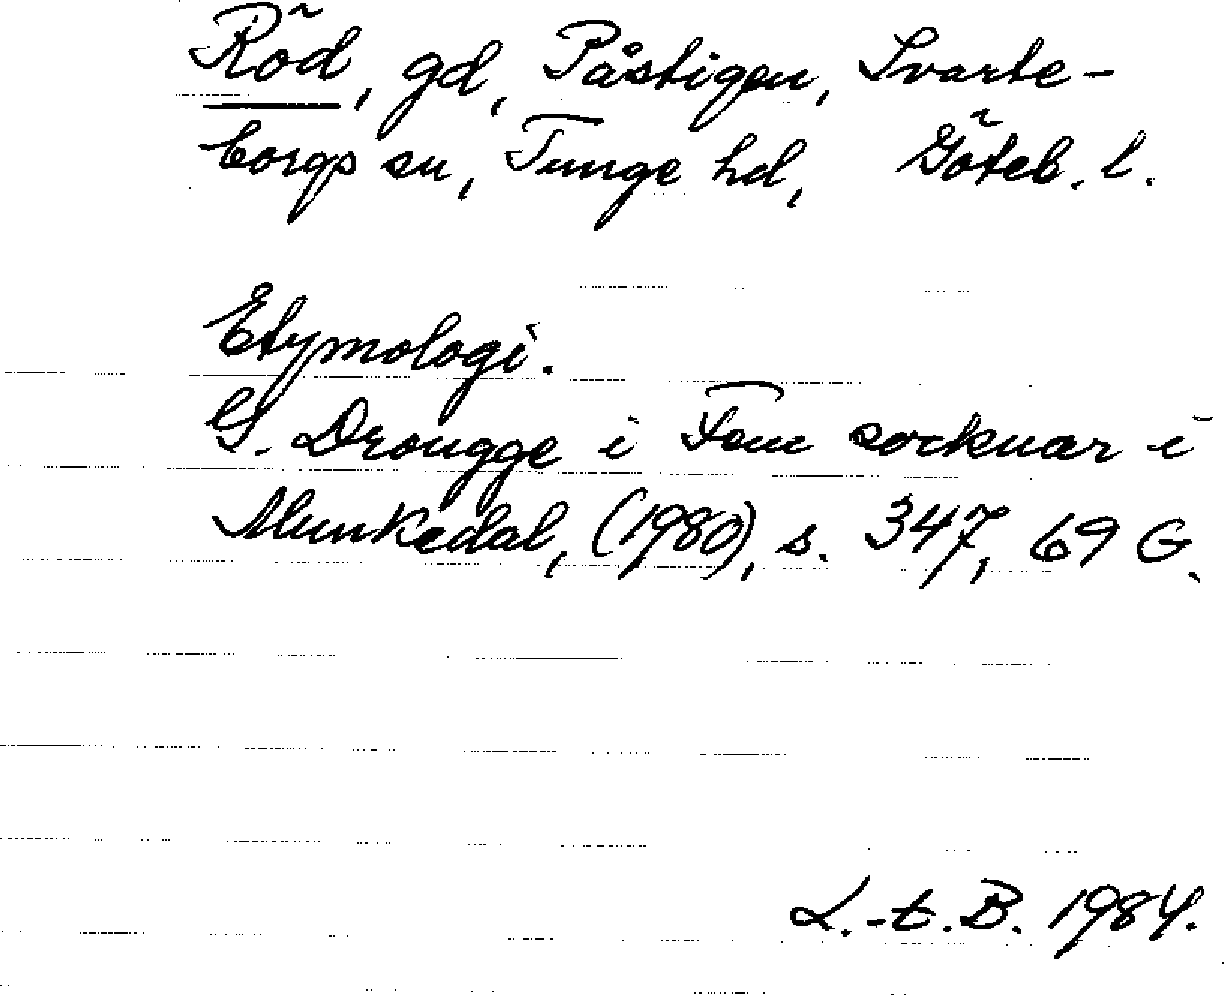 Röd, gd, Påstigen, Svarte-
borgs sn, Tunge hd, Göteb. l.
Etymologi.
G. Drougge i Fem socknar i
Munkedal, (1980), s. 347, 69 G.
L.-t. B. 1984.